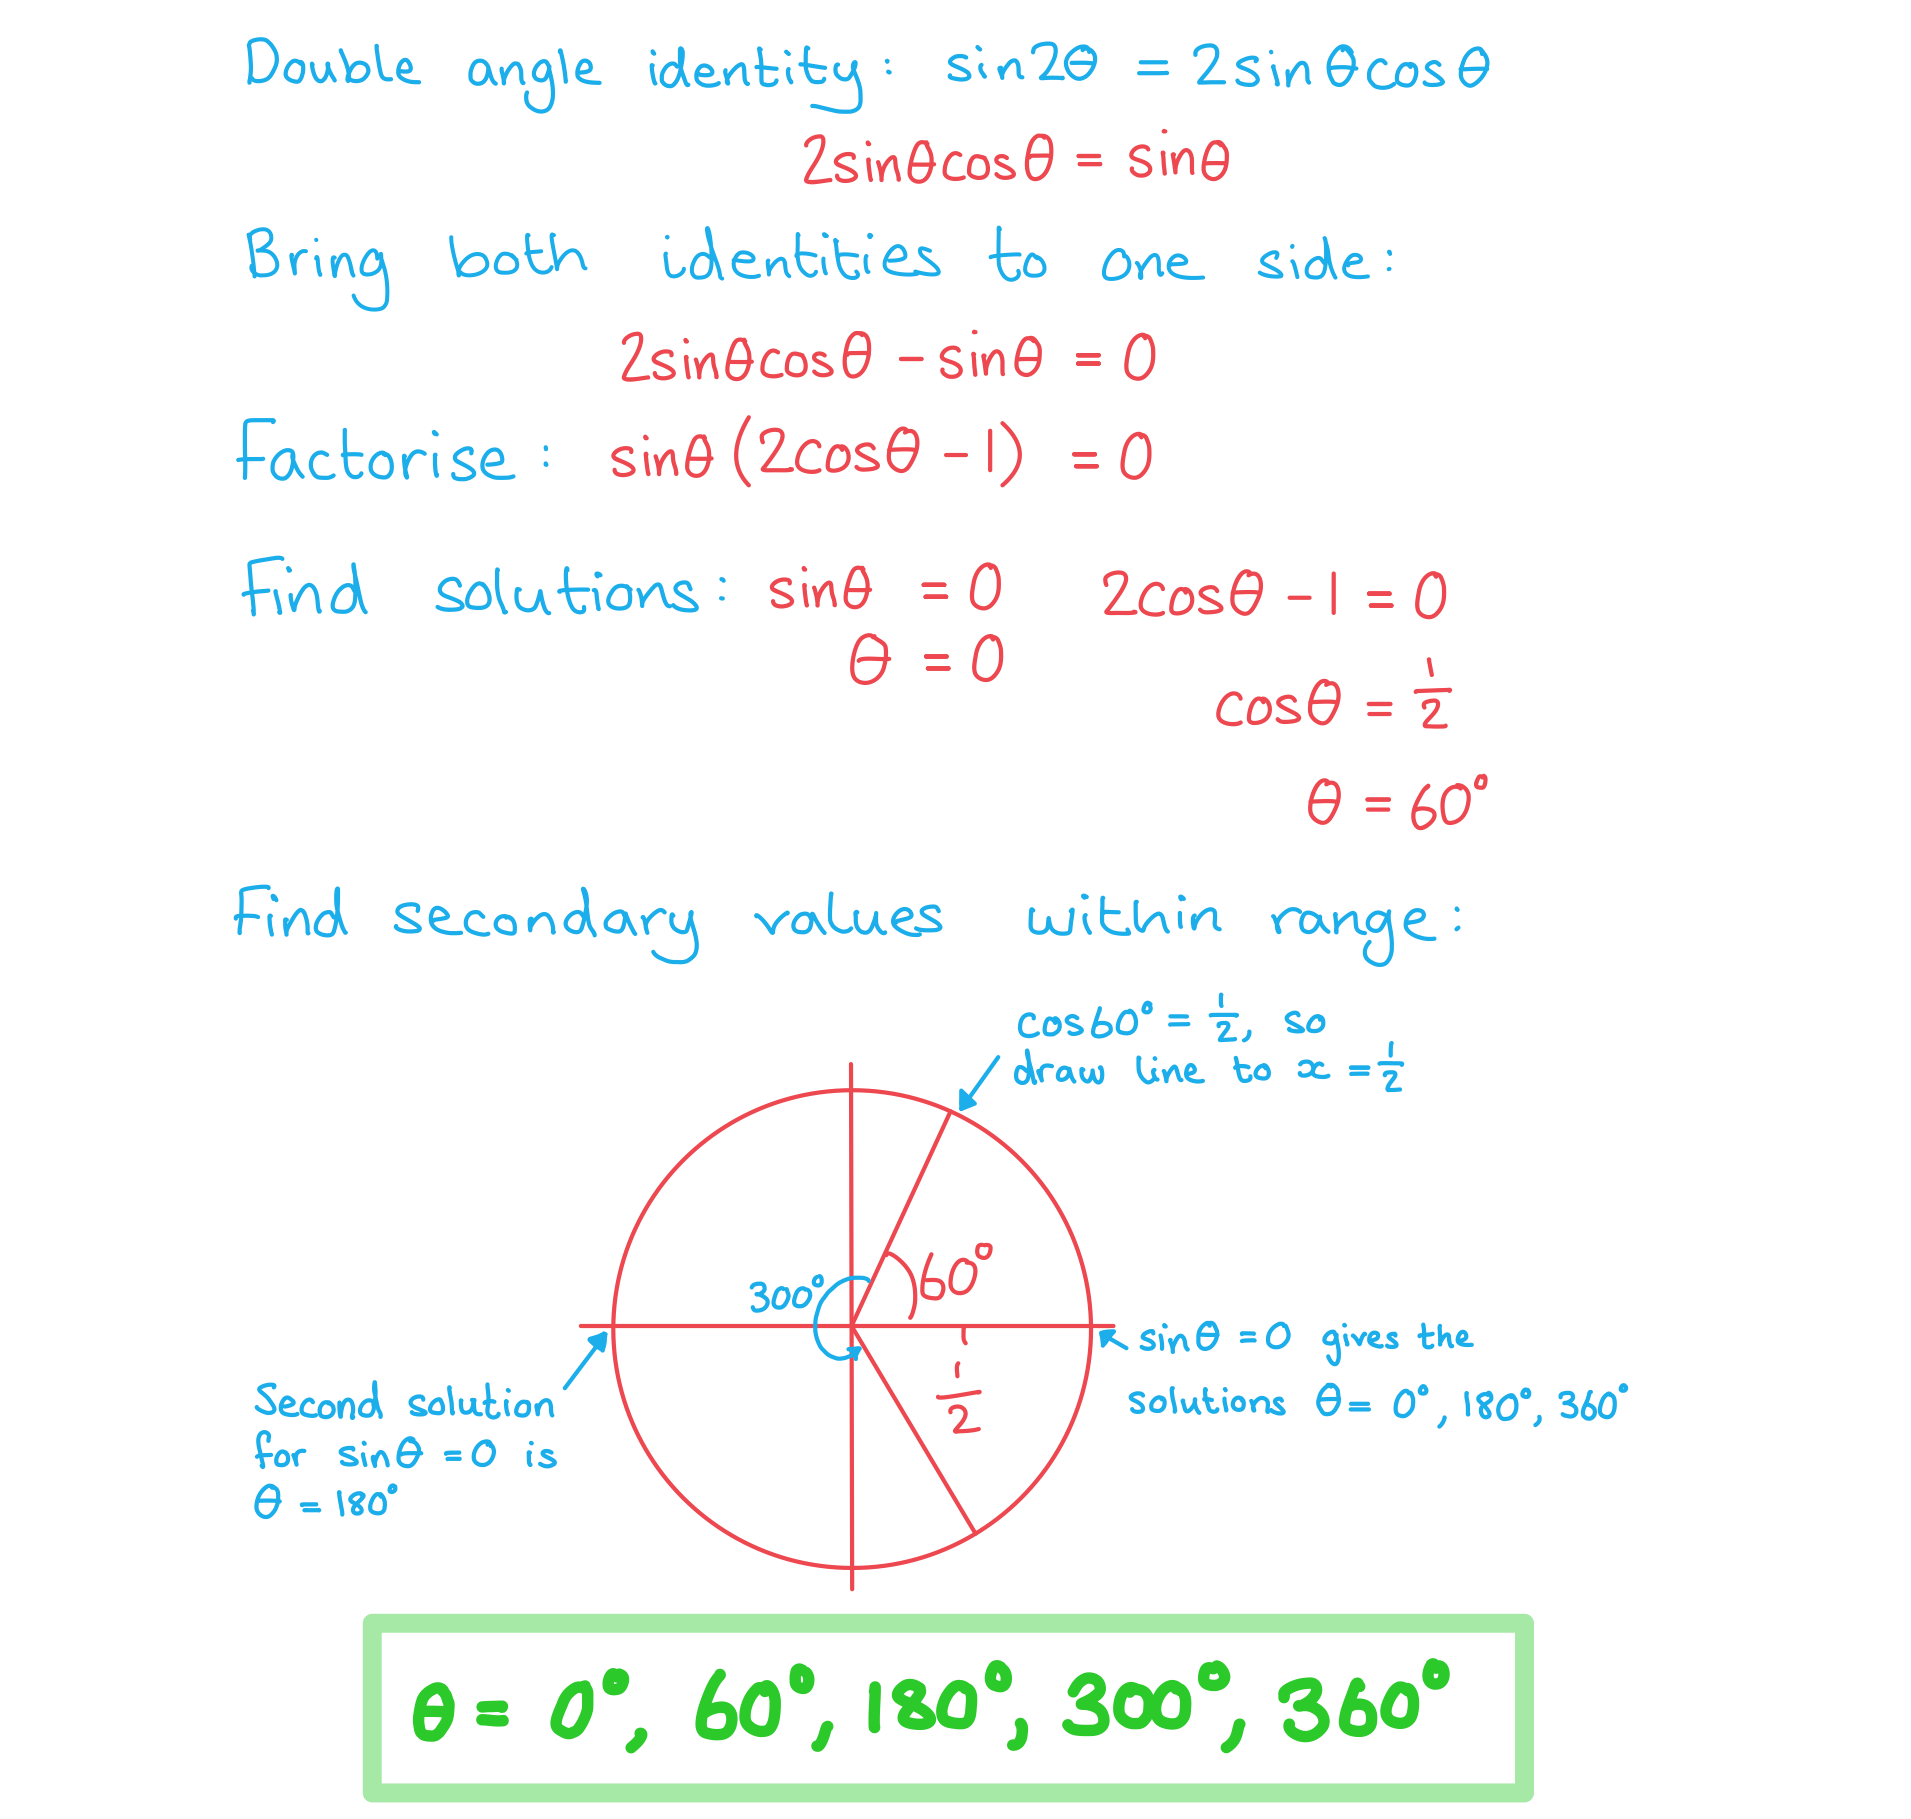 Double angle identity: sin2θ = 2sinθcosθ
2sinθcosθ = sinθ
Bring both identities to one side:
2sinθcosθ - sinθ = 0
Factorise: sinθ(2cosθ - 1) = 0
Find solutions: sinθ = 0 2cosθ - 1 = 0
θ = 0
cosθ = 1/2
θ = 60°
Find secondary values within range:
cos60° = 1/2, so
draw line to x = 1/2
60°
300°
1/2
sinθ = 0 gives the
solutions θ = 0°, 180°, 360°
Second solution
for sinθ = 0 is
θ = 180°
θ = 0°, 60°, 180°, 300°, 360°